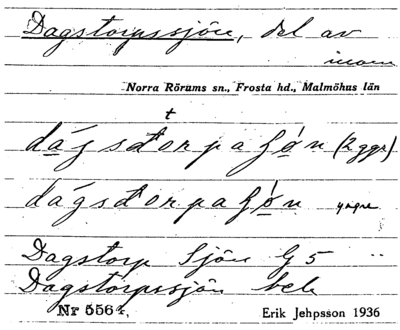 Dagstorpssjön, del av
inom
Norra Rörums sn., Frosta hd., Malmöhus län
t
dágsđorpaʃø̀n (2 ggr)
dágsđorpaʃø̀n yngre
Dagstorp Sjön G5 ··
Dagstorpssjön
Nr 5564. Erik Jehpsson 1936